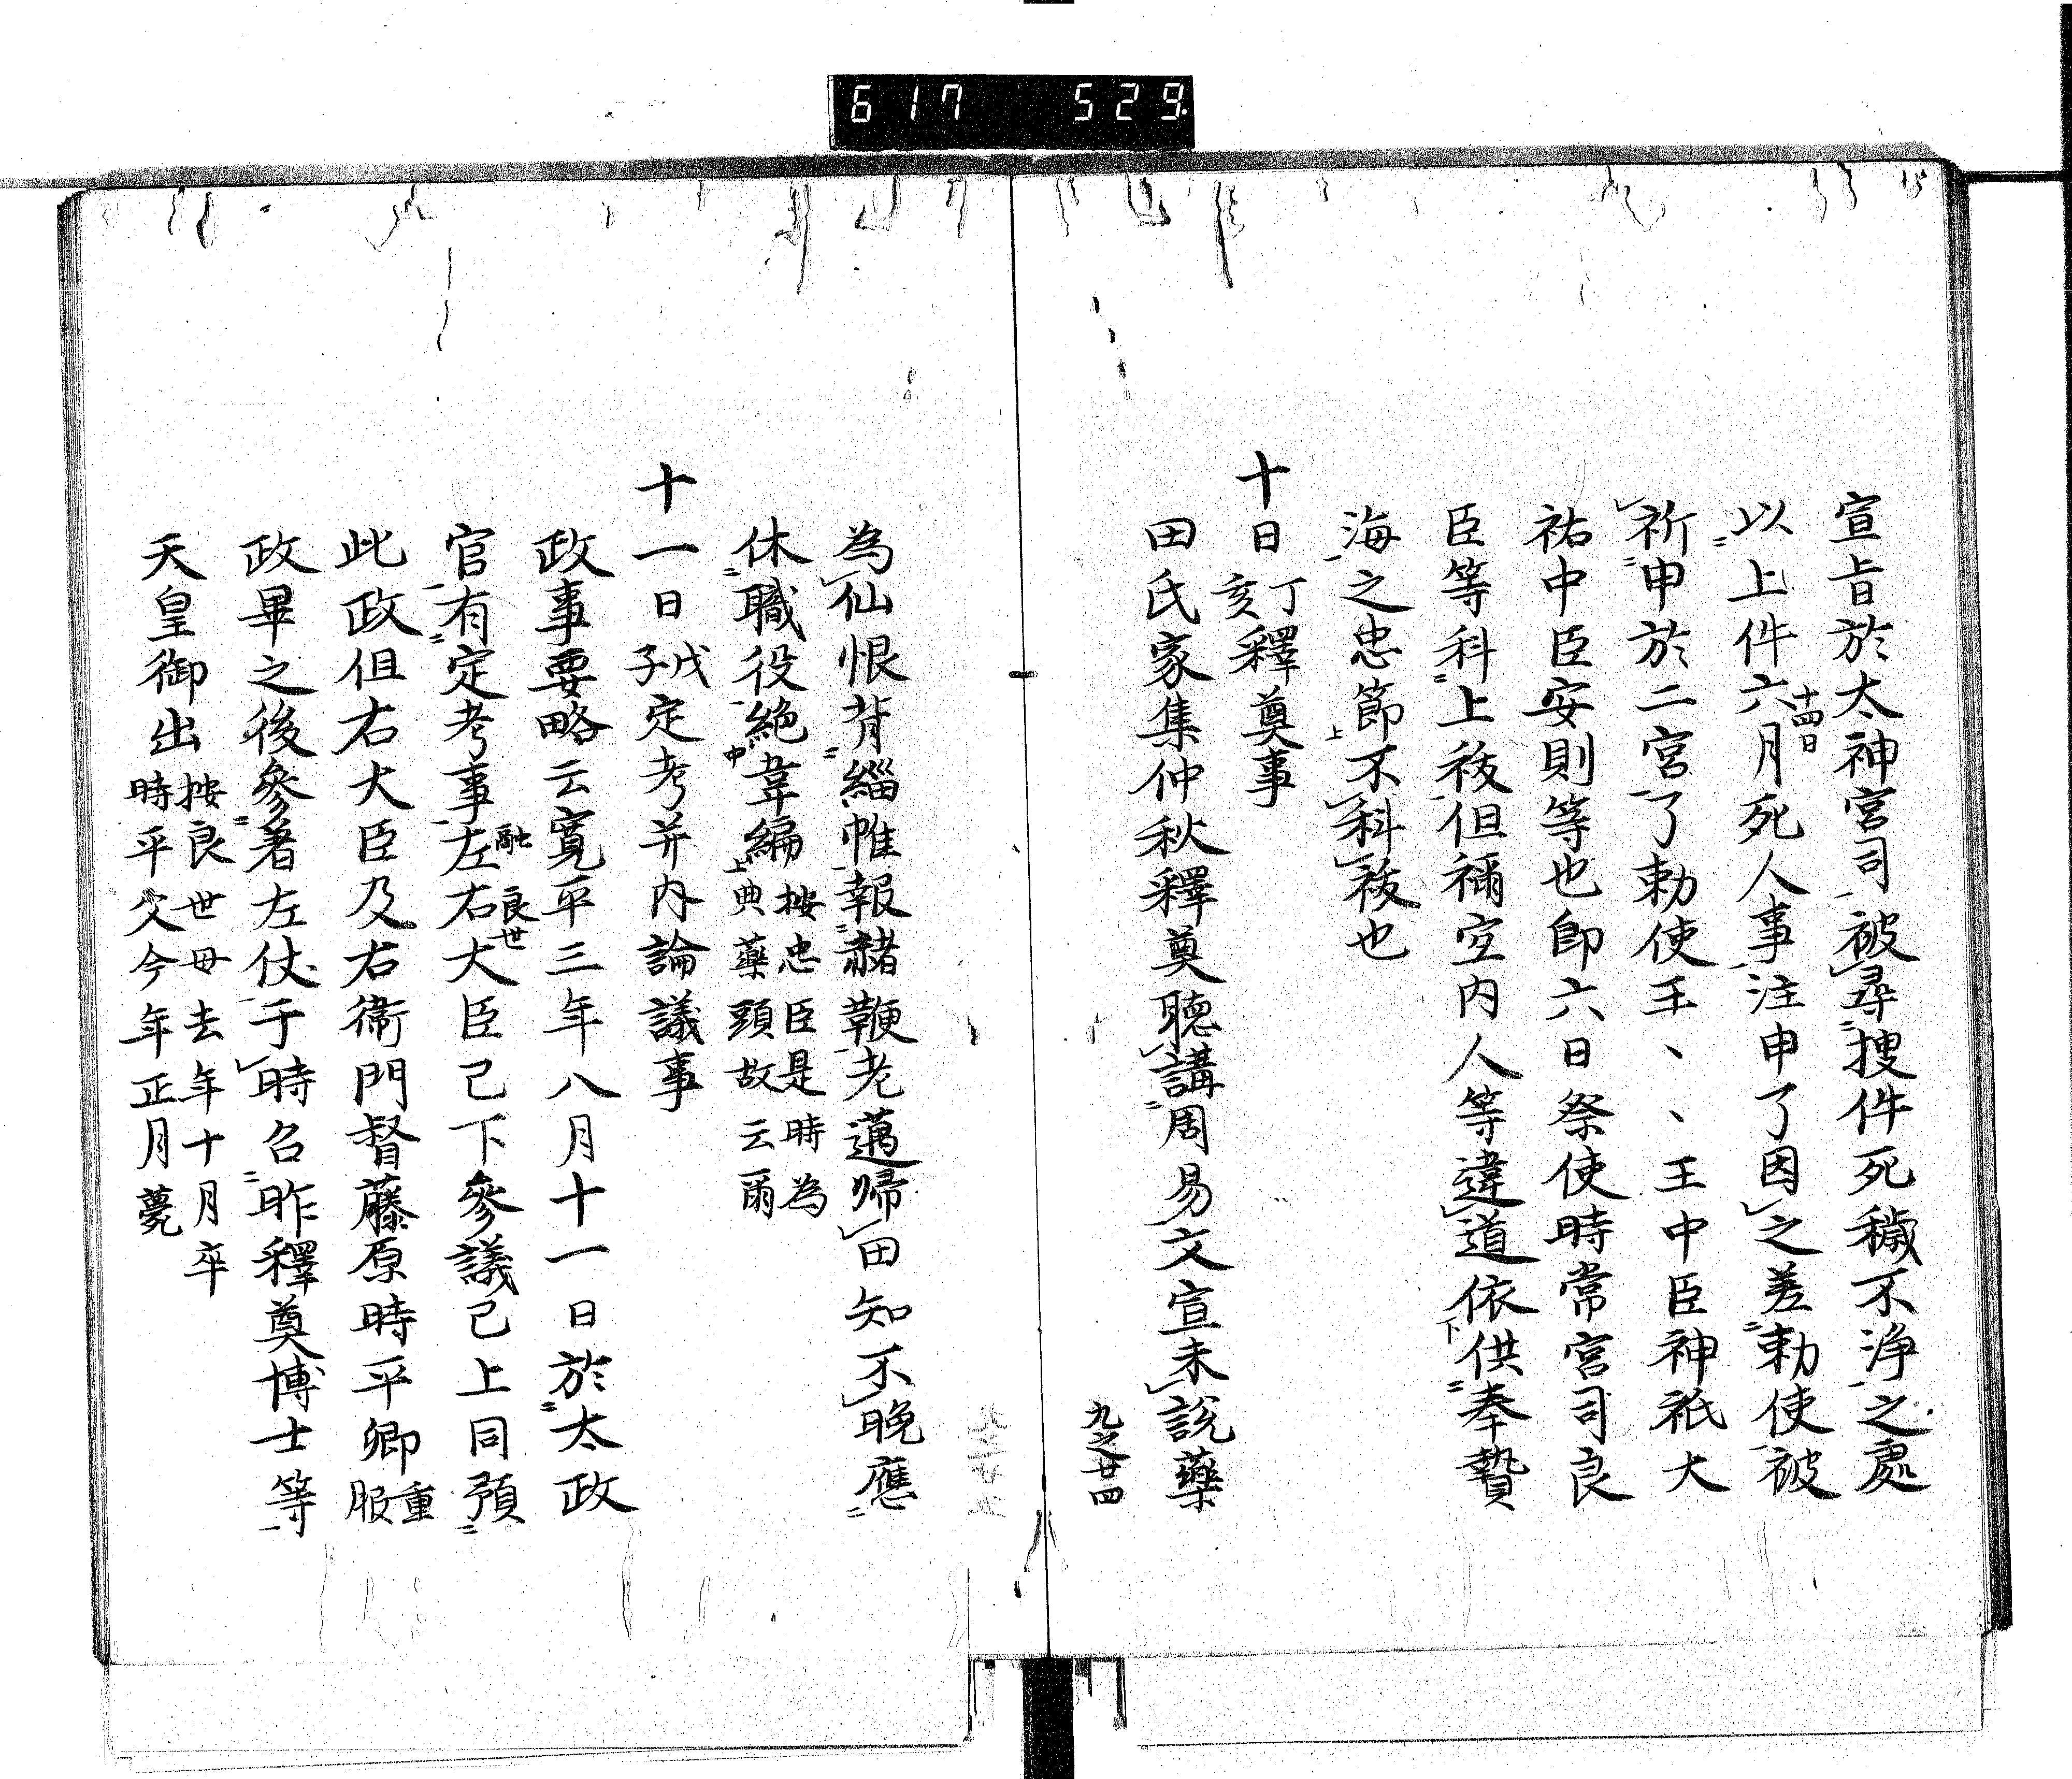 617 529
15
宣旨於太神宮司被尋捜件死穢不浄之處
以上件六月十四日死人事注申了因之差勅使被
祈申於二宮了勅使王、、王中臣神祇大
祐中臣安則等也即六日祭使時常宮司良
臣等科上祓但禰宜内人等違道依供奉贄
海之忠節不科祓也
十日丁亥釋奠事
田氏家集仲秋釋奠聽講周易文宣未說藥
九之廿四
為仙恨背緇帷報赭鞭老邁歸田知不晩應
休職役絶韋編按忠臣是時為典藥頭故云爾
十一日戊子定考并内論議事
政事要略云寛平三年八月十一日於太政
官有定考事左融右良世大臣已下參議已上同預
此政但右大臣及右衞門督藤原時平卿重服
政畢之後參著左仗于時召昨釋奠博士等
天皇御出按良世母去年十月卒時平父今年正月薨